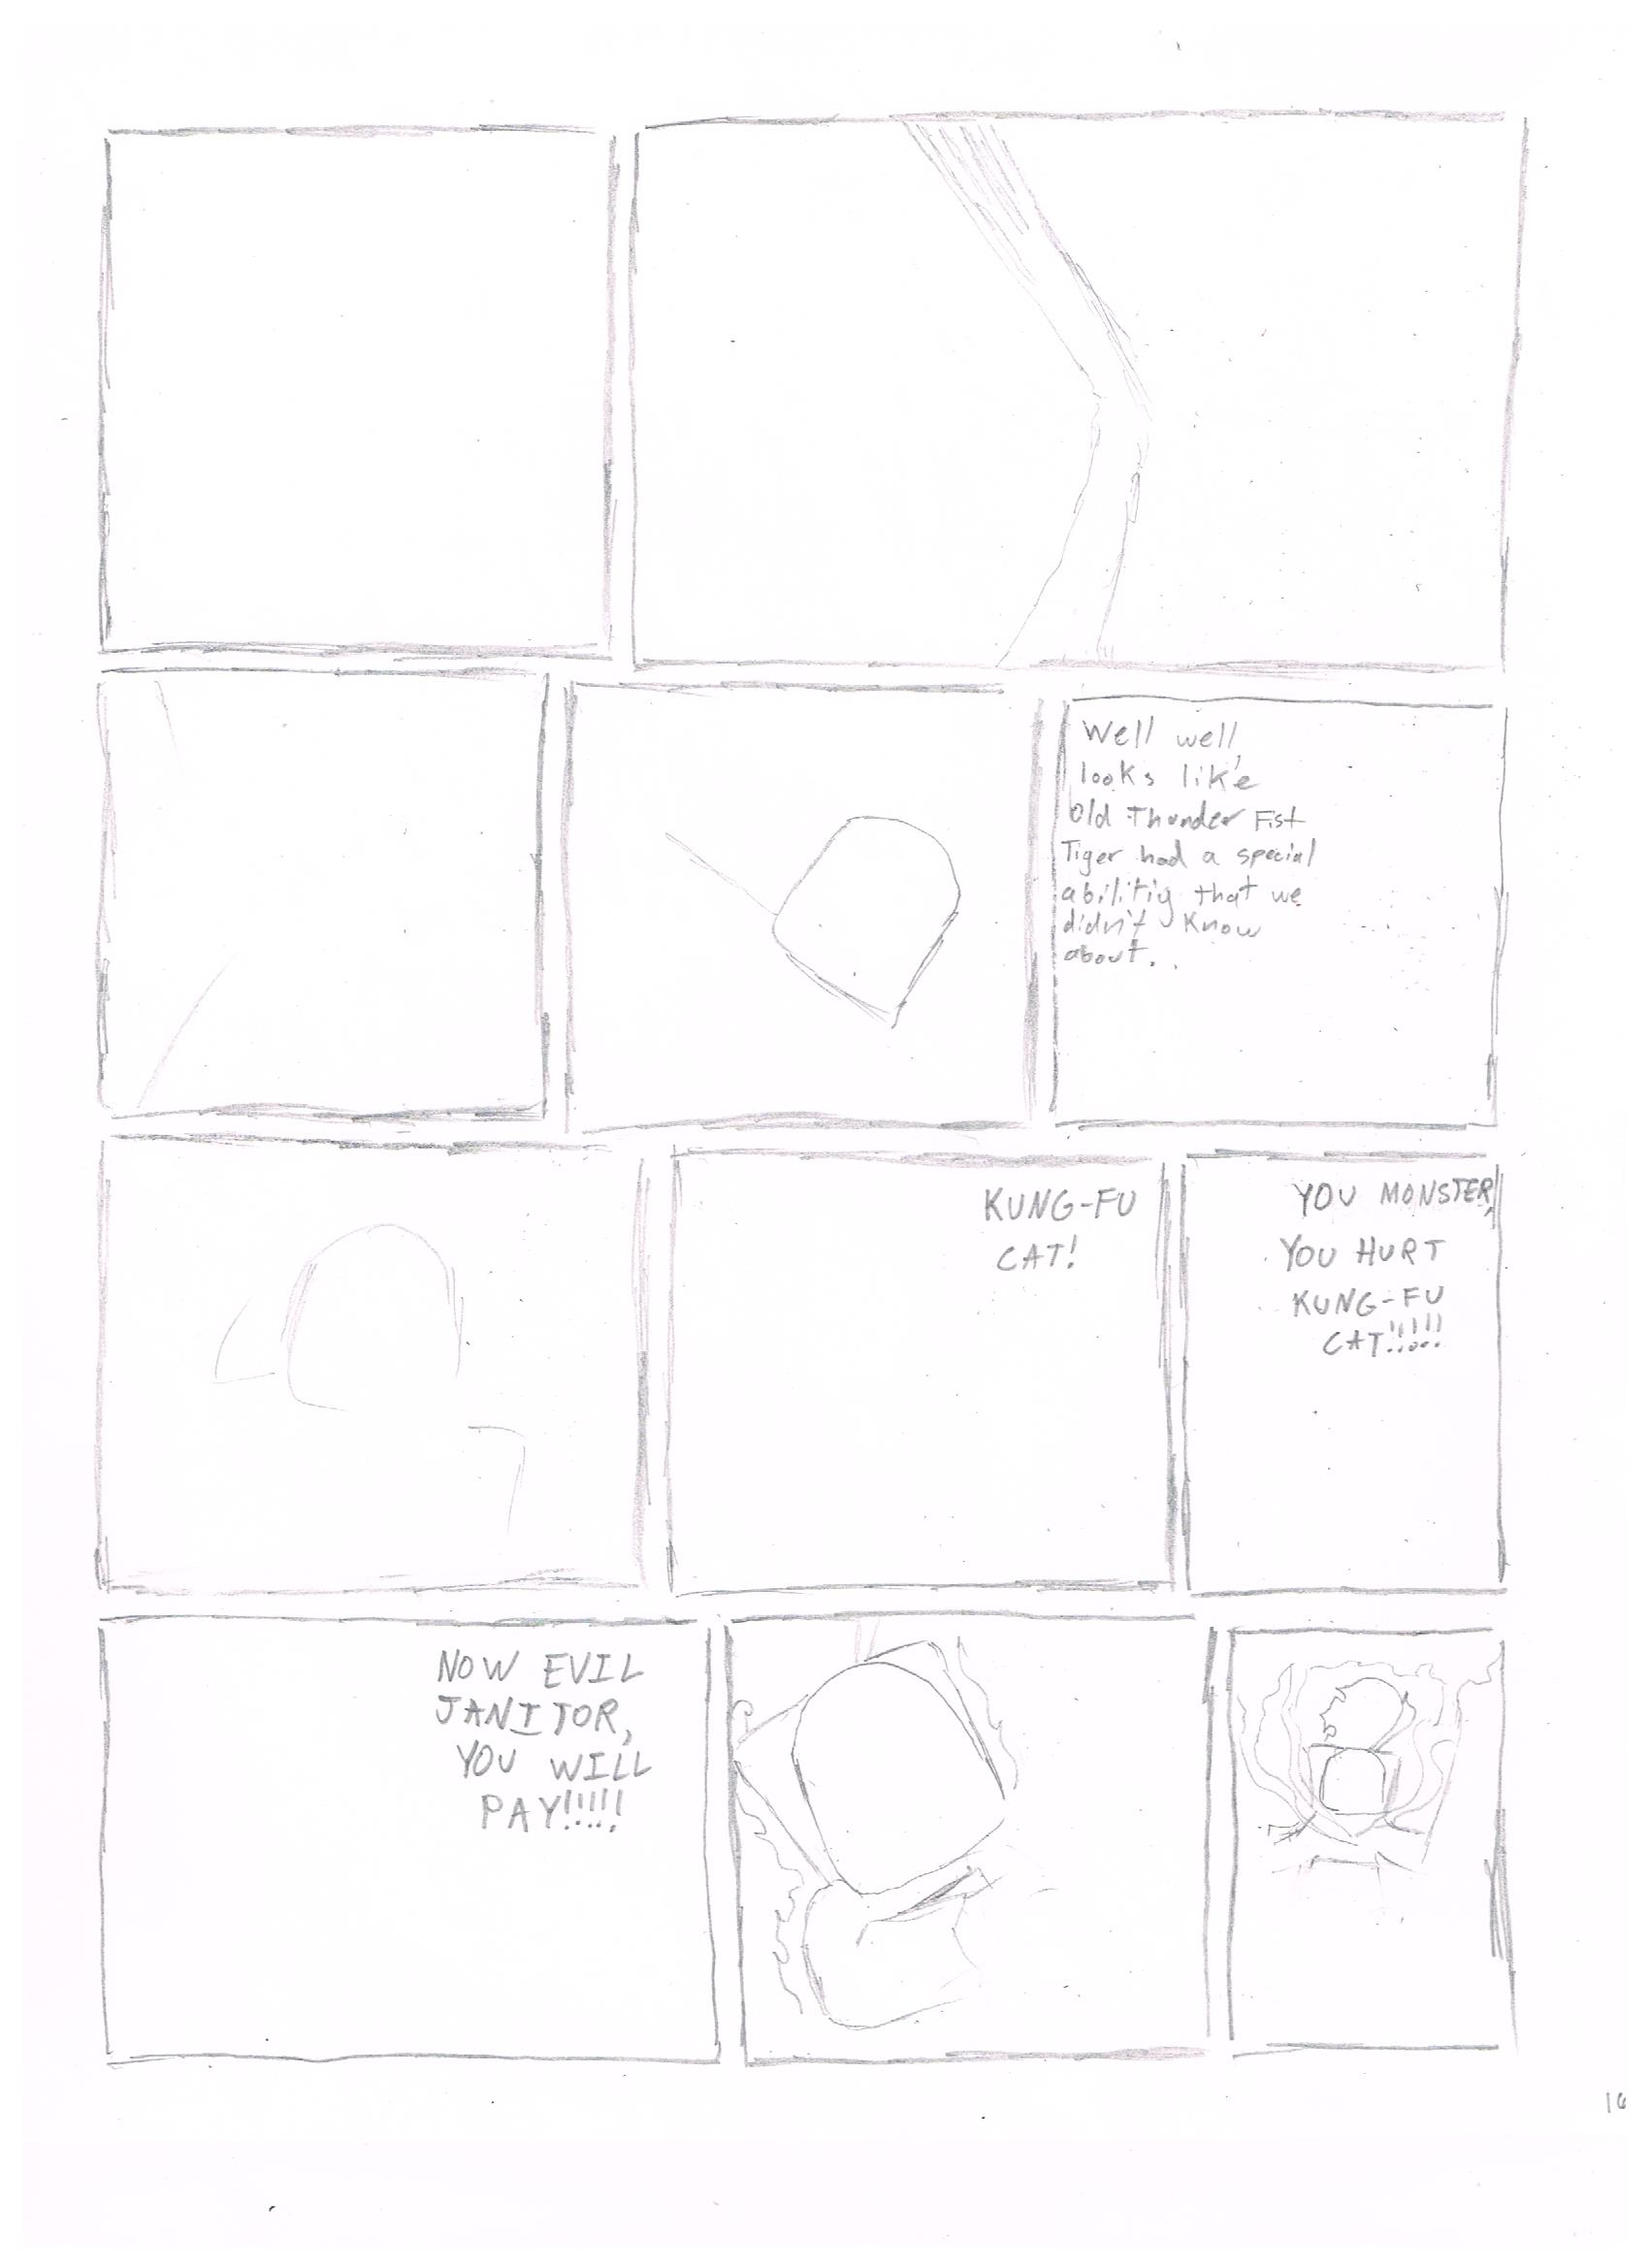 Well well,
looks like
Old Thunder Fist
Tiger had a special
abilitiy that we
didn't know
about.
KUNG-FU
CAT!
YOU MONSTER,
YOU HURT
KUNG-FU
CAT!!!!!
NOW EVIL
JANITOR,
YOU WILL
PAY!!!!!
16